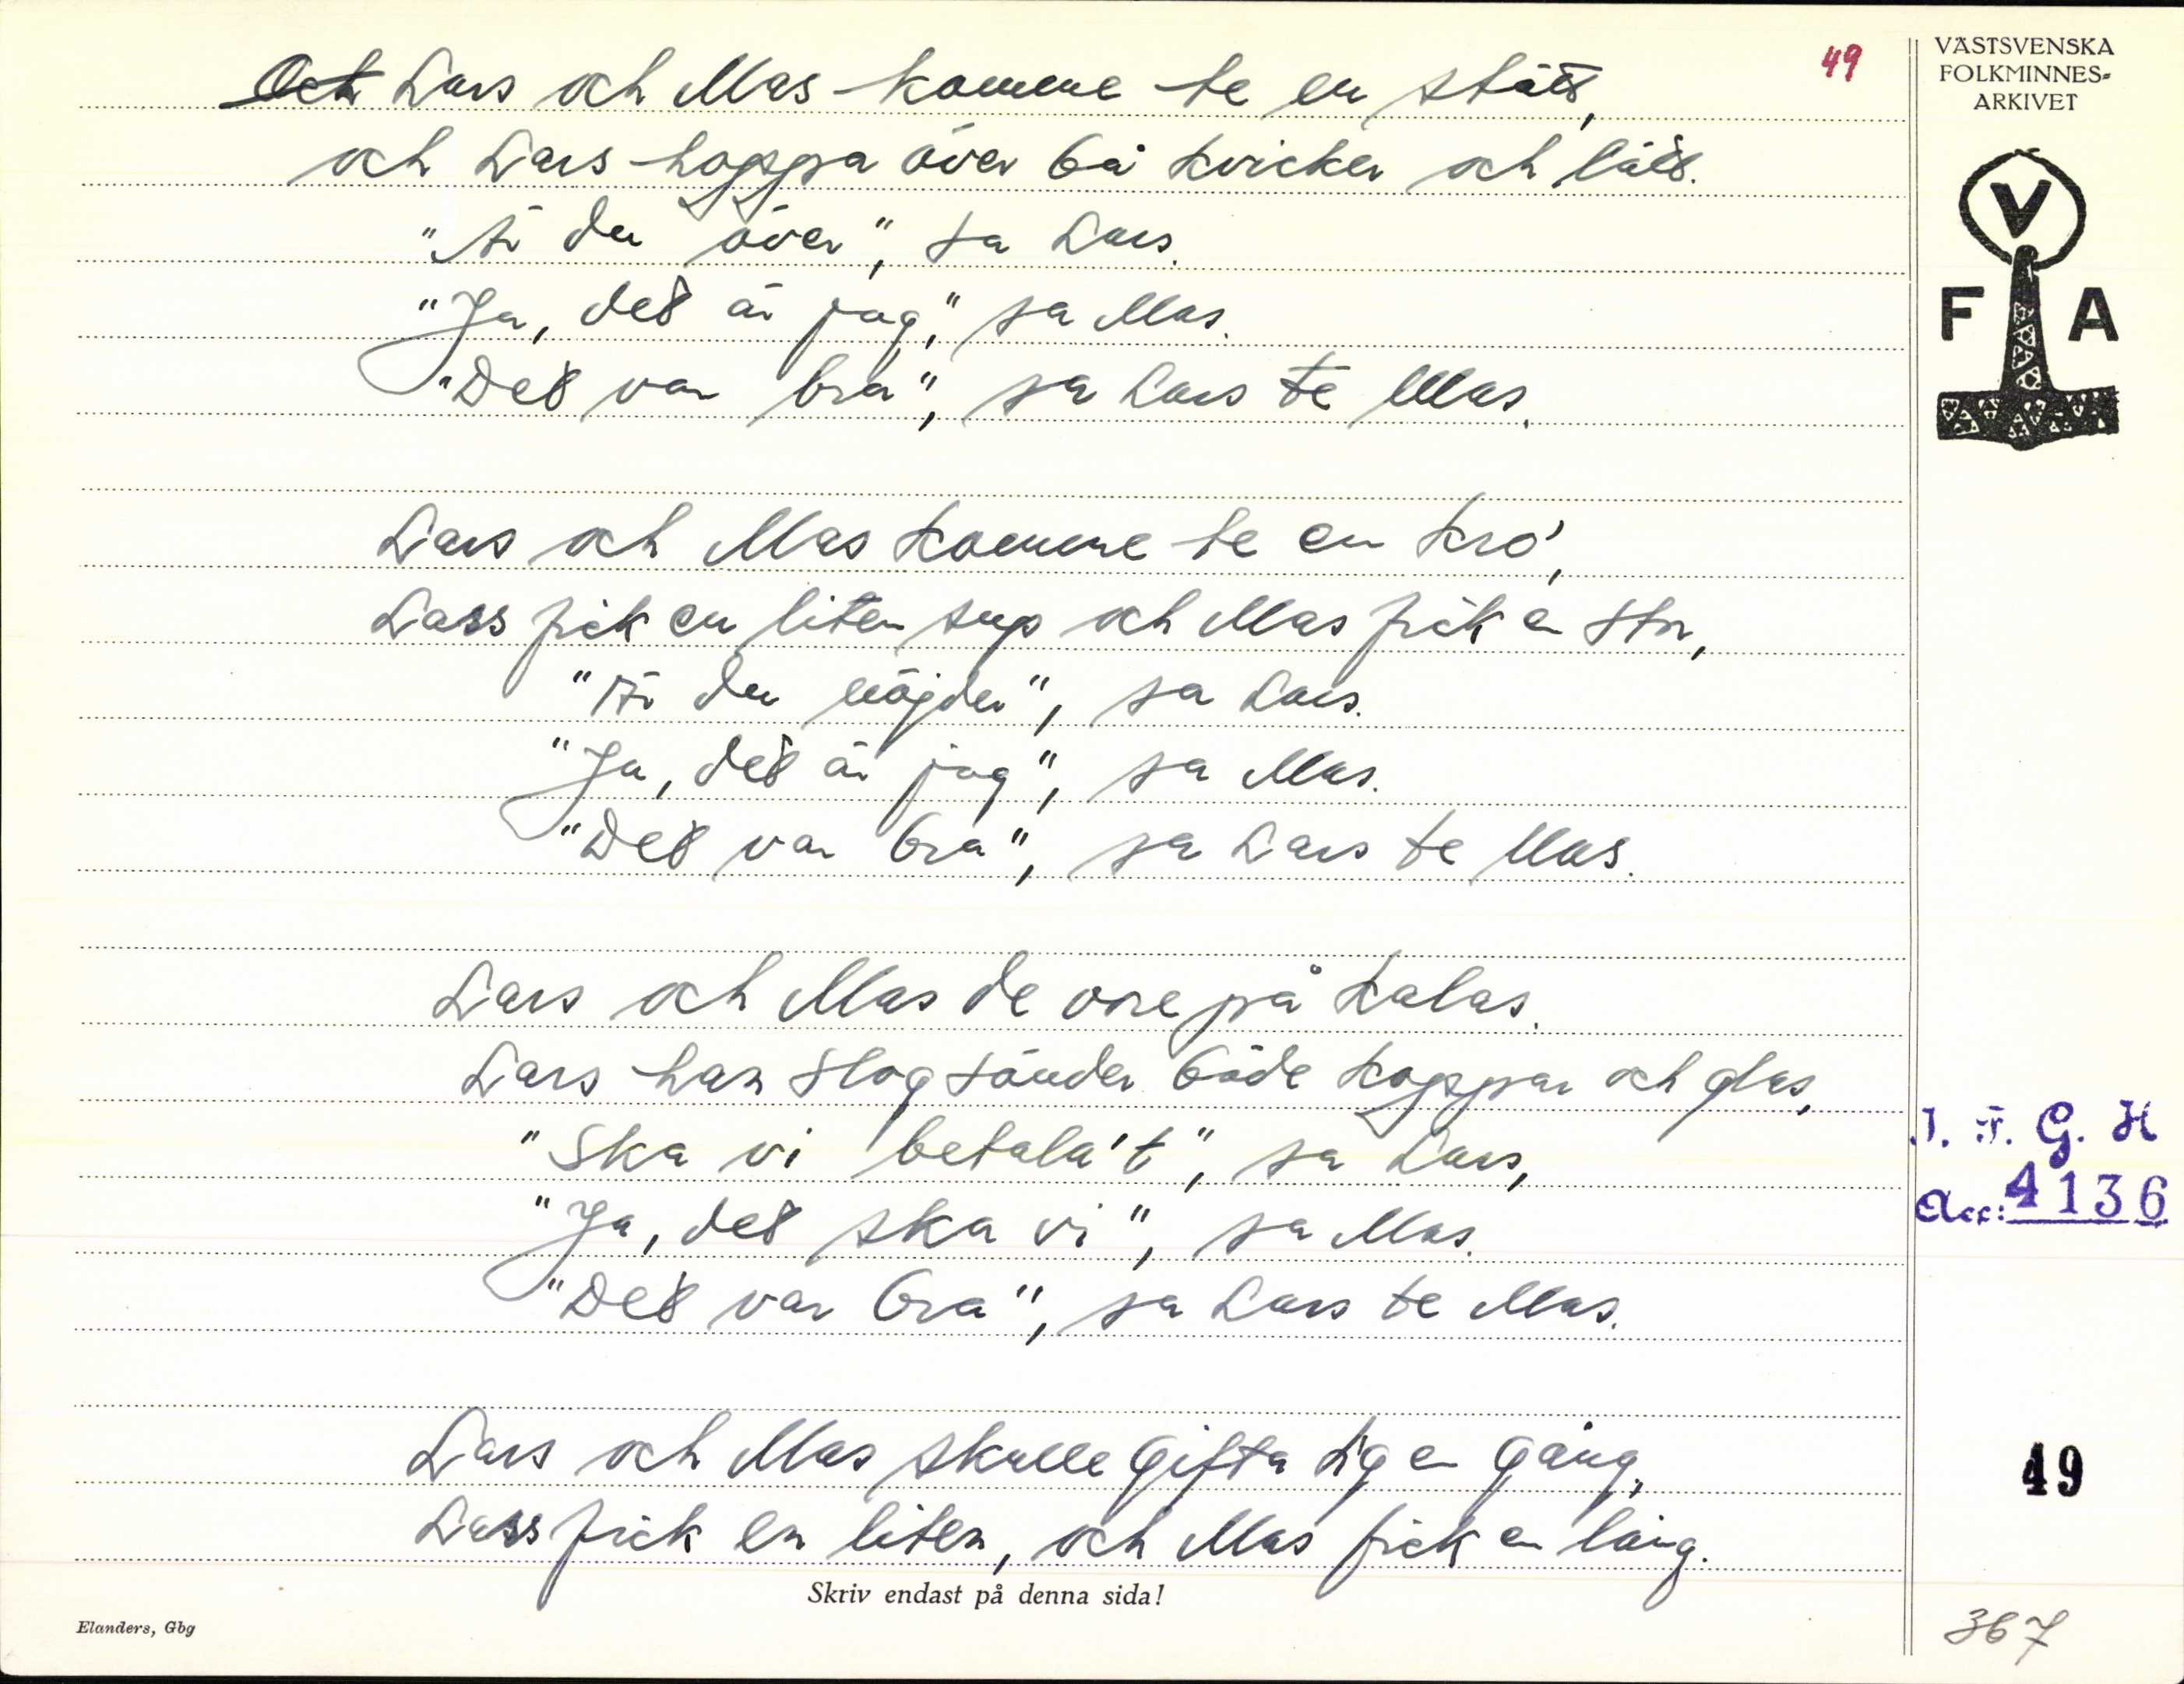 49
VÄSTSVENSKA
FOLKMINNES-
ARKIVET
V
F A
Och Lars och Mas komme te en stätt,
och Lars hoppa över bå kvicker och lätt.
"Är du över", sa Lars.
"Ja, det är jag", sa Mas.
"Det var bra", sa Lars te Mas.
Lars och Mas komme te en kro',
Lass fick en liten sup och Mas fick en stor,
"Är du nöjder", sa Lars.
"Ja, det är jag", sa Mas.
"Det var bra", sa Lars te Mas.
Lars och Mas de vore på kalas.
Lars han slog sönder både koppar och glas,
"Ska vi betala't", sa Lars,
"Ja, det ska vi", sa Mas.
"Det var bra", sa Lars te Mas.
Lars och Mas skulle gifta sig en gång,
Lass fick en liten, och Mas fick en lång.
I. F. G. H
Acc: 4136
49
Skriv endast på denna sida!
Elanders, Gbg
367